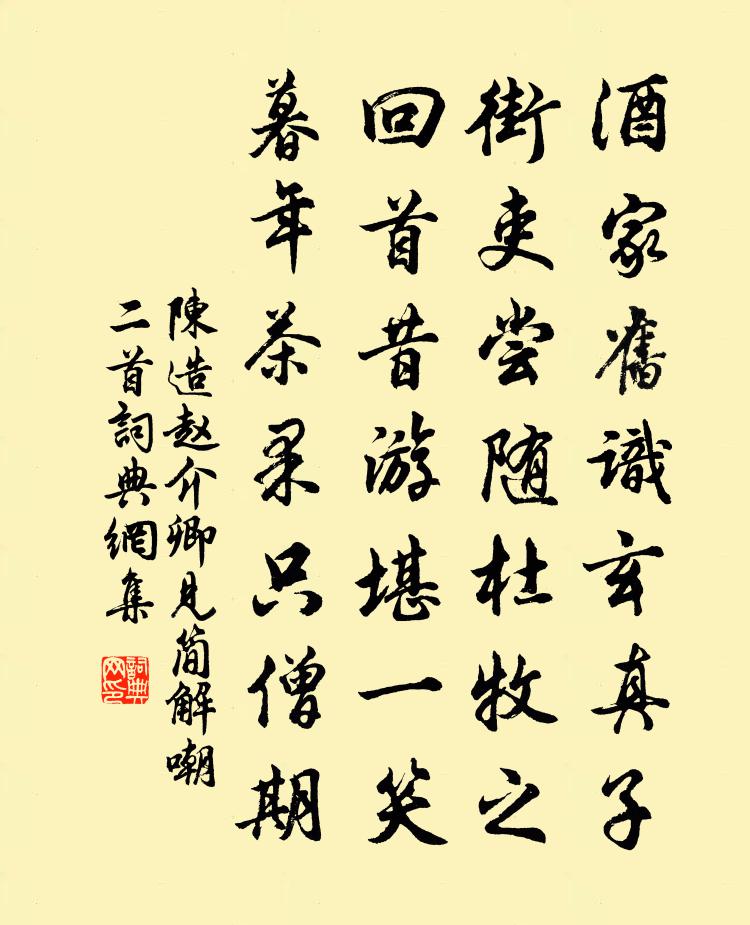 酒家舊識玄真子
街吏尝随杜牧之
回首昔游堪一笑
暮年茶果只僧期
陳造赵介卿見简解嘲
二首詞典網集
詞典网印